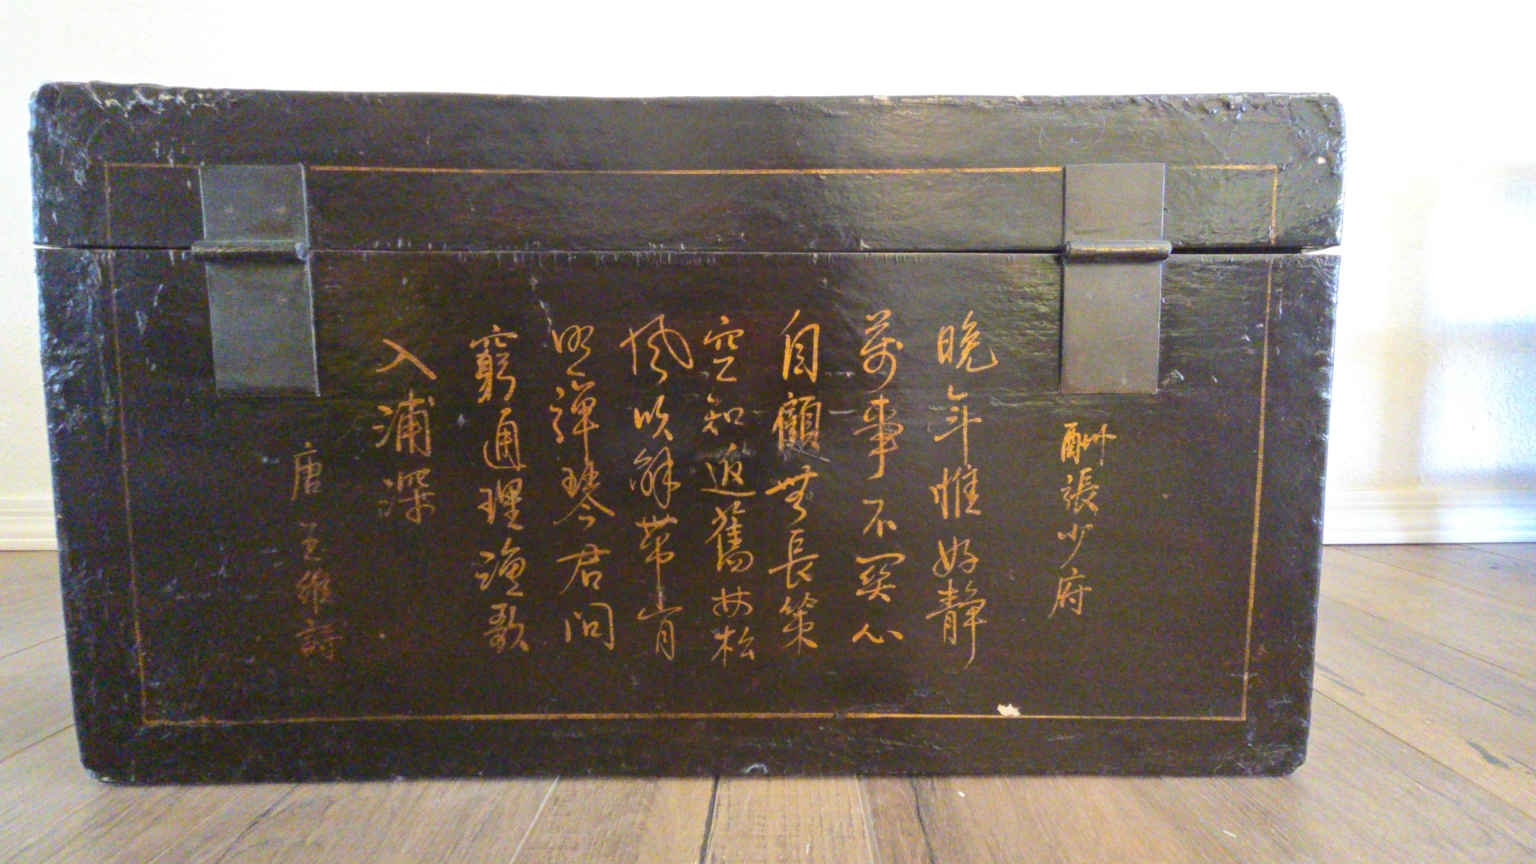 酬張少府
晚年惟好靜
萬事不關心
自顧無長策
空知返舊林松
風吹解帶山月
照彈琴君問
窮通理漁歌
入浦深
唐王維詩